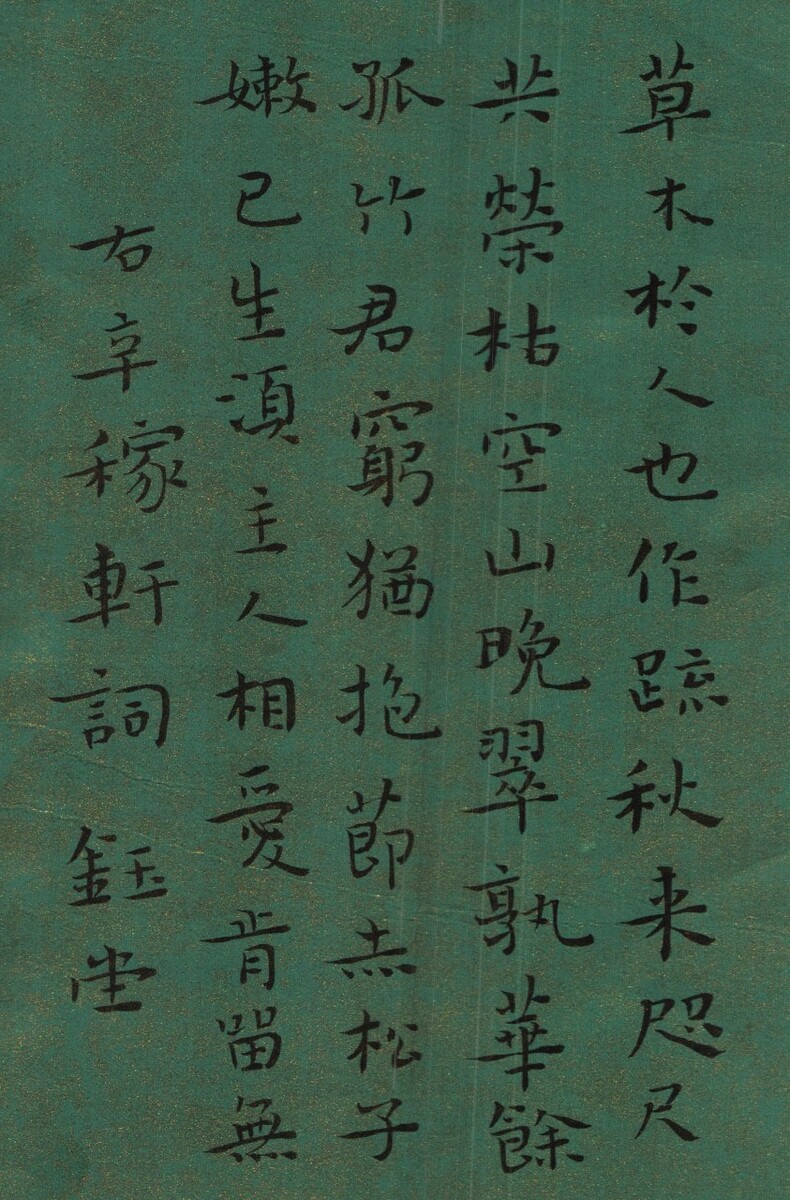 草木於人也作䟽秋来咫尺
共榮枯空山晚翠孰華餘
孤竹君窮猶抱莭赤松子
嫩已生湏主人相愛肯留無
右辛稼軒詞 鈺堂